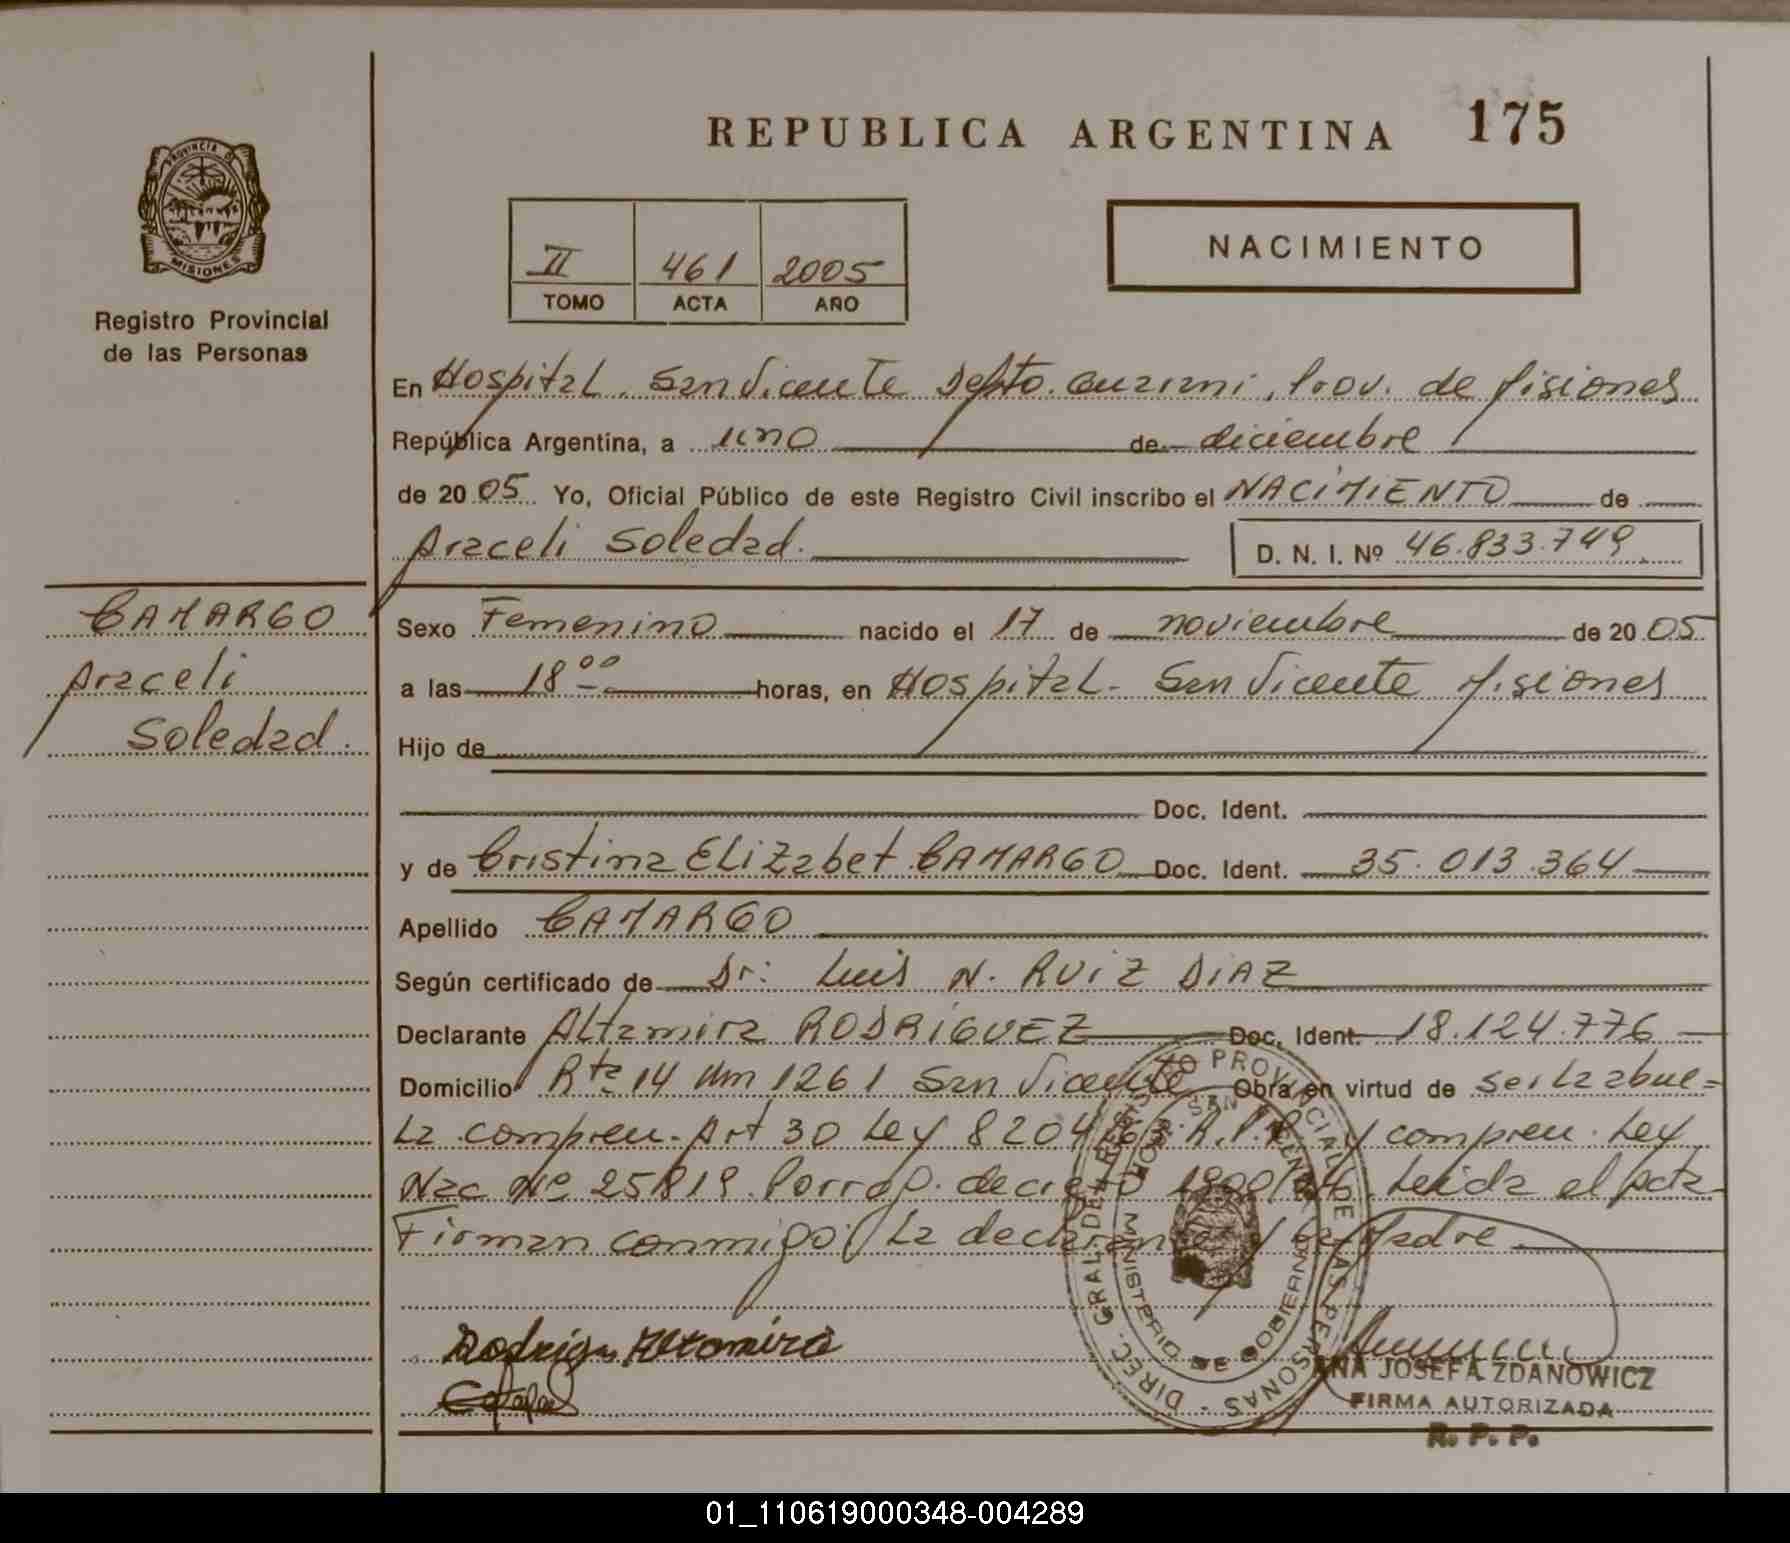 REPUBLICA ARGENTINA 175
PROVINCIA D
MISIONES
Registro Provincial
de las Personas
NACIMIENTO
II 461 2005
TOMO ACTA AÑO
En Hospital. San Vicente Depto. Guarani, Prov. de Misiones
República Argentina, a uno de diciembre
de 20 05 Yo, Oficial Público de este Registro Civil inscribo el NACIMIENTO de
Araceli Soledad.
D. N. I. Nº 46.833.749.
CAMARGO
Araceli
Soledad.
Sexo Femenino nacido el 17 de noviembre de 20 05
a las 18 00 horas, en Hospital - San Vicente Misiones
Hijo de
Doc. Ident.
y de Cristina Elizabet CAMARGO Doc. Ident. 35.013.364
Apellido CAMARGO
Según certificado de Dr: Luis N. RUIZ DIAZ
Declarante Altamira RODRIGUEZ Doc. Ident. 18.124.776
Domicilio Rta 14 Km 1261 San Vicente Obra en virtud de ser la abue=
la compren. Art 30 Ley 8204/63. y compren. Ley
Nac Nº 25819. decreto Leida el Acta
Firman conmigo: La declarante y la Madre
Rodrigu Altamira
DIREC. GRAL. DEL REGISTRO PROVINCIAL DE LAS PERSONAS
MINISTERIO DE GOBIERNO
SAN
ANA JOSEFA ZDANOWICZ
FIRMA AUTORIZADA
R. P. P.
01_110619000348-004289